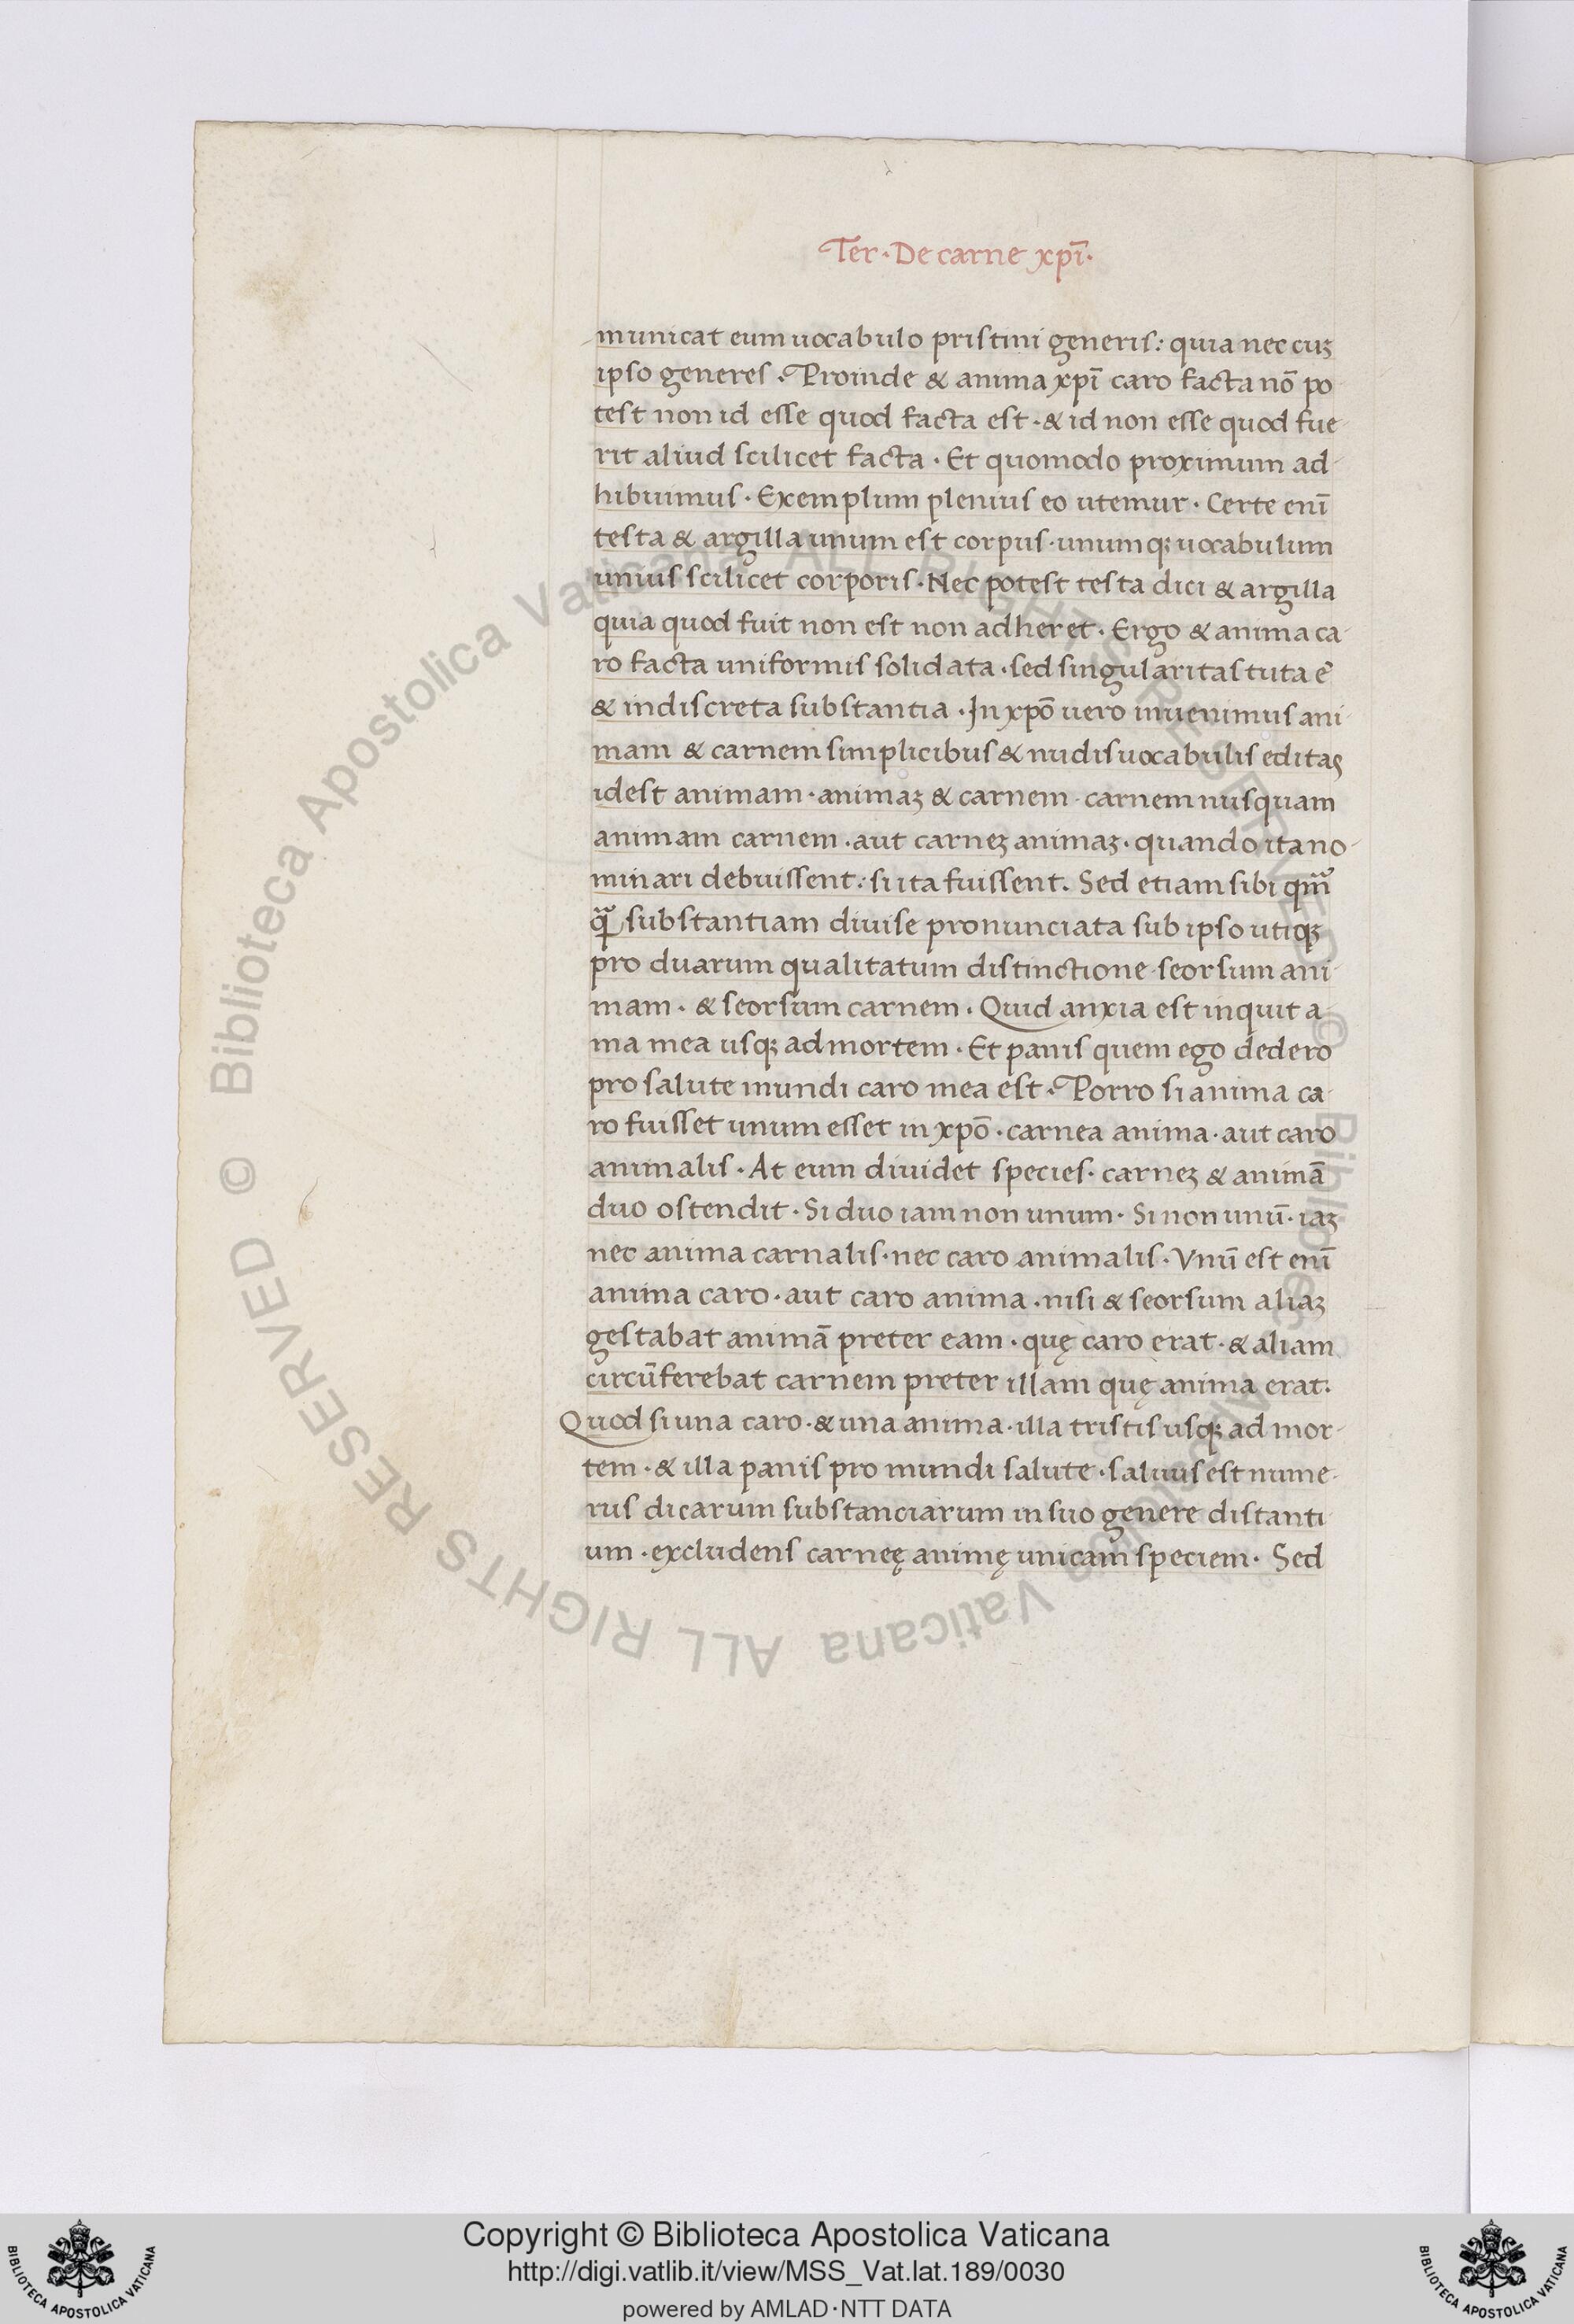 Ter · De carne xpī ·
municat eum uocabulo pristini generis : quia nec cuȝ
ipso generes · Proinde & anima xpī caro facta nō po
test non id esse quod facta est · & id non esse quod fue
rit aliud scilicet facta · Et quomodo proximum ad
hibuimus · Exemplum plenius eo utemur · Certe enī
testa & argilla unum est corpus · unumqȝ uocabulum
unius scilicet corporis · Nec potest testa dici & argilla
quia quod fuit non est non adheret · Ergo & anima ca
ro facta uniformis solidata · sed singularitas tuta ē
& indiscreta substantia · In xpō uero inuenimus ani
mam & carnem simplicibus & nudis uocabulis editas
idest animam · animaȝ & carnem · carnem nusquam
animam carnem · aut carneȝ animaȝ · quando ita no-
minari debuissent : si ita fuissent . Sed etiam sibi
substantiam diuise pronunciata sub ipso utiqȝ
pro duarum qualitatum distinctione seorsum ani
mam · & seorsum carnem · Quid anxia est inquit a
ma mea usqȝ ad mortem · Et panis quem ego dedero
pro salute mundi caro mea est · Porro si anima ca
ro fuisset unum esset in xpō · carnea anima · aut caro
animalis · At eum diuidet species · carneȝ & animā
duo ostendit · Si duo iam non unum · Si non unū · iaȝ
nec anima carnalis · nec caro animalis · Vnū est enī
anima caro · aut caro anima · nisi & seorsum aliaȝ
gestabat animā preter eam · quę caro erat · & aliam
circūferebat carnem preter illam quę anima erat .
Quod si una caro · & una anima · illa tristis usqȝ ad mor
tem · & illa panis pro mundi salute · saluus est nume
rus dicarum substanciarum in suo genere distanti
um · excludens carneę animę unicam speciem · Sed
© Biblioteca Apostolica Vaticana ALL RIGHTS RESERVED
© Biblioteca Apostolica Vaticana ALL RIGHTS RESERVED
Copyright © Biblioteca Apostolica Vaticana
http://digi.vatlib.it/view/MSS_Vat.lat.189/0030
powered by AMLAD · NTT DATA
BIBLIOTECA APOSTOLICA VATICANA
BIBLIOTECA APOSTOLICA VATICANA